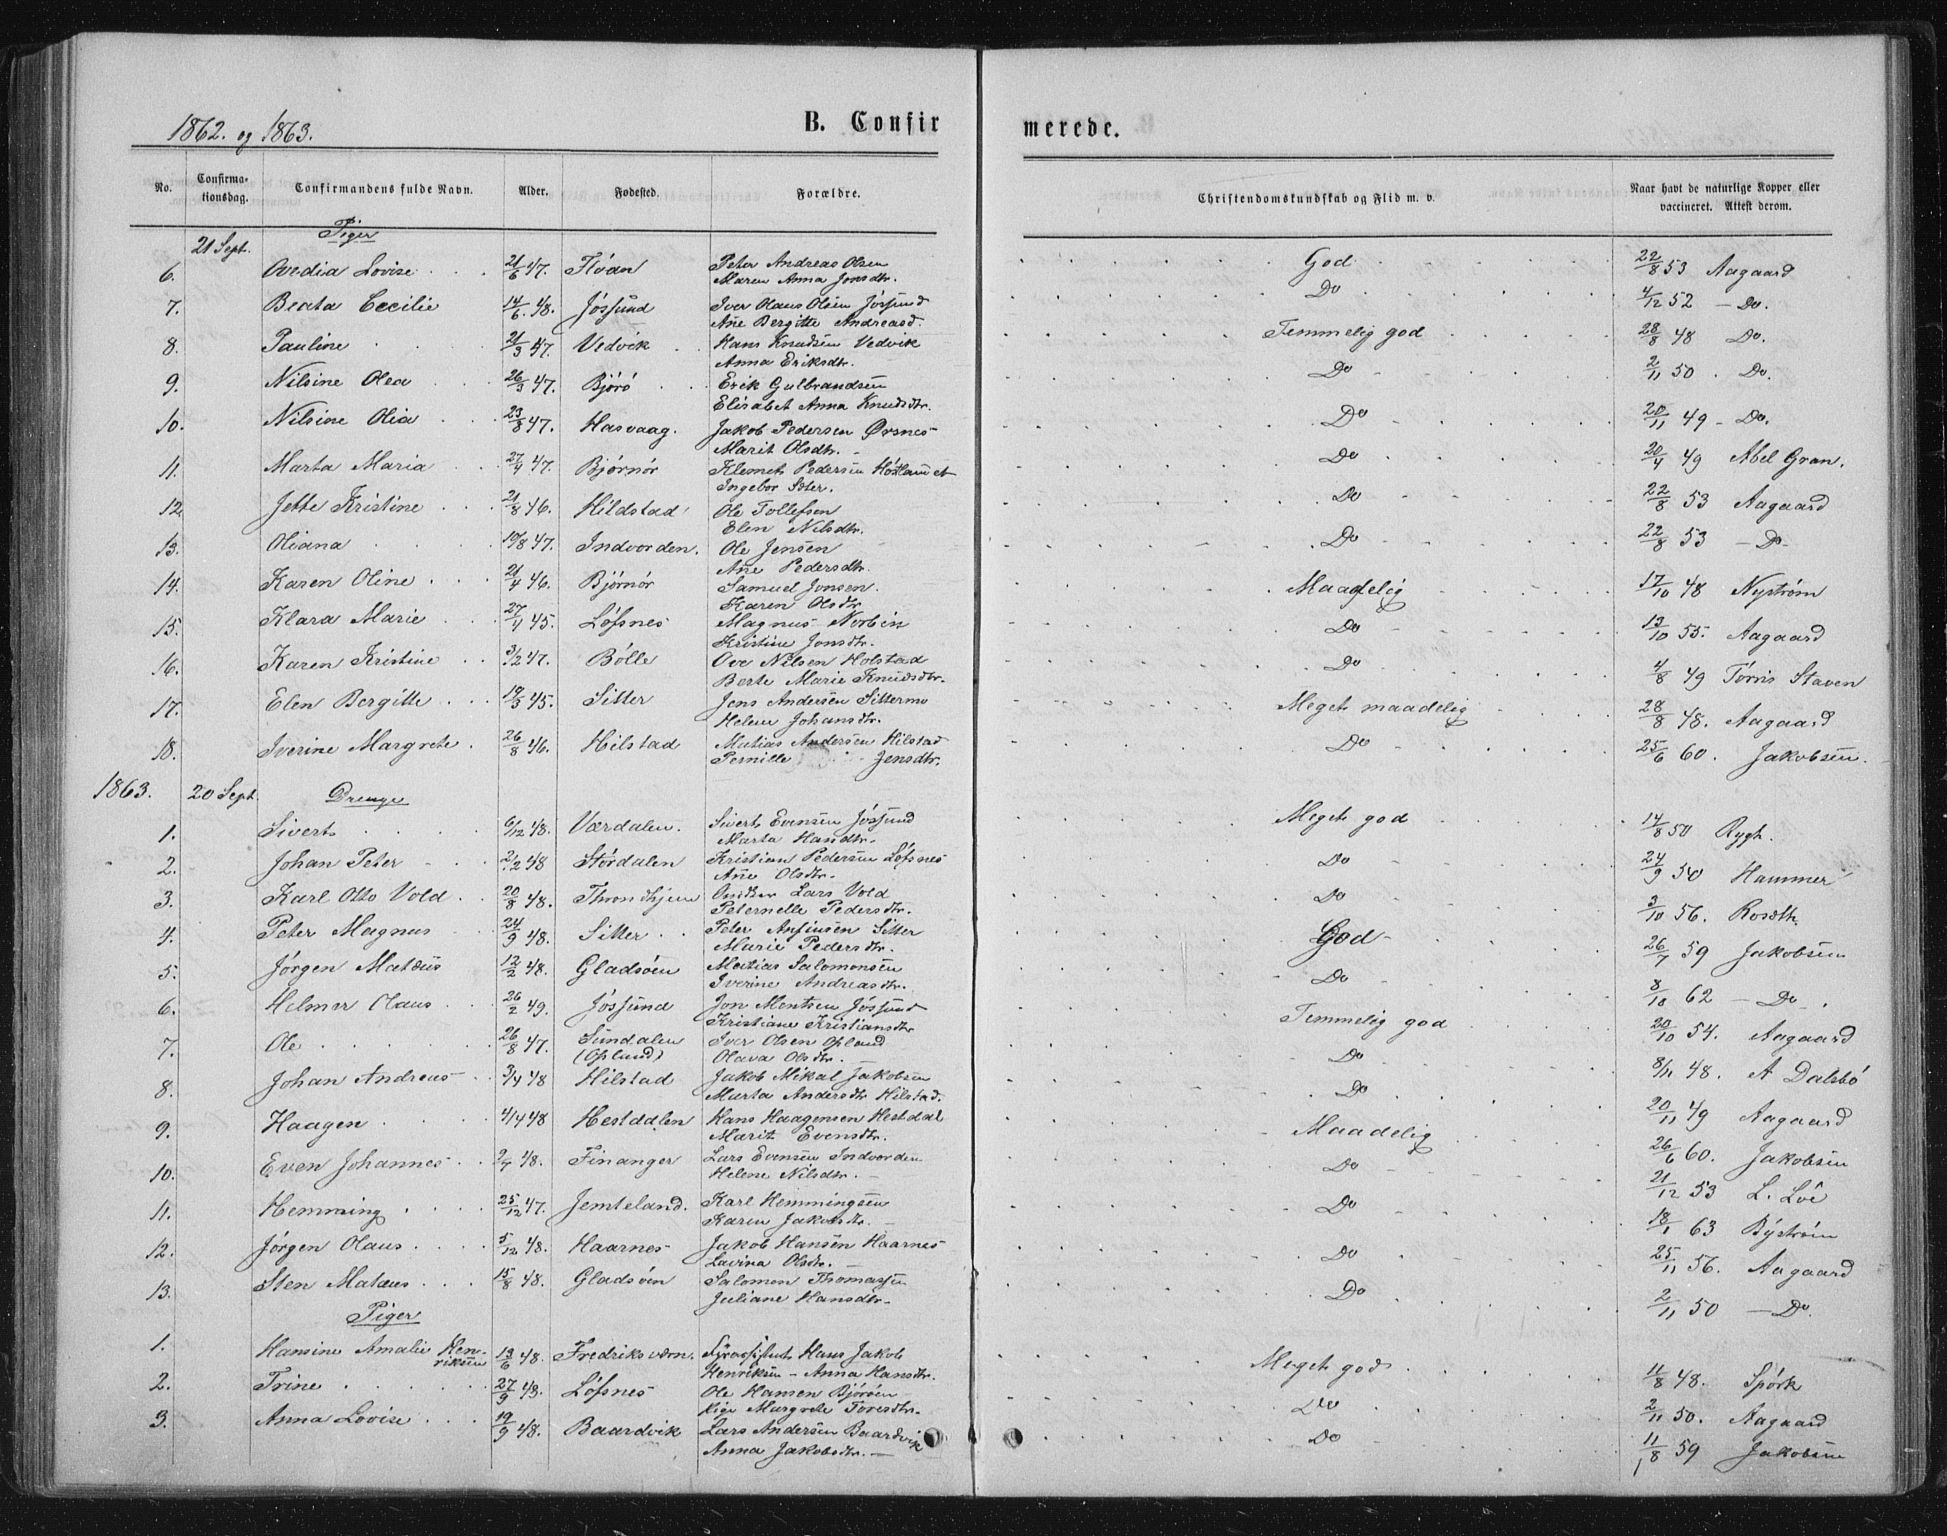 1862. og 1863.
B. Confirmerede.
No. Confirmationsdag. Confirmandens fulde Navn. Alder. Fødested. Forældre. Christendomskundskab og Flid m. v. Naar havt de naturlige Kopper eller vaccineret. Attest derom.
21 Sept. Piger
6. Ovedia Lovise 21/6 47. Flóän Peter Andreas Olsen God 22/8 53 Aagaard
Maren Anna Jonsdtr.
7. Beata Cecilie 14/6 48. Jøssund Iver Olaus Olsen Jøssund Do 4/12 52 – Do.
Ane Bergitte Andreasd.
8. Pauline 21/3 47. Vedvik Hans Knudsen Vedvik Temmelig god 28/8 48 Do.
Anna Eriksdtr.
9. Nilsine Olea 26/3 47. Bjørø Erik Gulbrandsen Do 2/11 50 . Do.
Elisabet Anna Knudsdtr.
10. Nilsine Olia 23/8 47. Hasvaag. Jakob Pedersen Ørsnes Do 20/11 49 – Do.
Marit Olsdtr.
11. Marta Maria 27/4 47. Bjørnør Klemet Pedersen Do 20/4 49 Abel Gran.
Ingebor
12 Jette Kristine 21/8 46. Hildstad Ole Tollefsen Do 22/8 53 Aagaard
Elen Nilsdtr.
13. Oliana 19/8 47. Indvorden. Ole Jensen Do 22/8 53 – Do –
Ane Pedersdtr.
14. Karen Oline 21/4 46. Bjørnør Samuel Jonsen Maadelig 17/10 48 Nystrøm
Karen Olsdtr
15. Klara Marie 27/4 45. Løfsnes Magnus Norbin Do 13/10 55. Aagaard
Kristine Jonsdtr.
16. Karen Kristine 3/2 47. Bølle Ove Nilsen Holstad Do 4/8 49 Tørris Staven
Berte Marie Knudsdtr.
17. Elen Bergitte 19/3 45. Sitter Jens Andersen Sittermo Meget maadelig 28/8 48. Aagaard
Helene Johansdtr.
18. Iverine Margrete. 26/8 46. Hilstad Matias Andersen Hilstad Do 25/6 60. Jakobsen.
Pernille Jensdtr.
1863. 20 Sept. Drenge
1. Sivert 6/12 48. Værdalen. Sivert Evensen Jøssund Meget god 14/8 50 Rygh.
Marta Hansdtr.
2. Johan Peter 2/12 48 Størdalen Kristian Pedersen Løfsnes Do 24/9 50 Hammer
Ane Olsdtr.
3. Karl Otto Vold 20/8 48. Throndhjem Lars Vold Do 3/10 56. Rosdth
Peternelle Pedersdtr.
4. Peter Magnus 24/9 48. Sitter Peter Anfinsen Sitter God 26/7 59 Jakobsen
Marie Pedersdtr.
5. Jørgen Matæus 12/2 48. Gladsøen Matias Salomonsen Do 8/10 62 – Do.
Iverine Andreasdtr.
6. Helmer Olaus 26/2 49. Jøssund Jon Mentsen Jøssund Temmelig god 20/10 54. Aagaard
Kristiane Kristiansdtr
7. Ole 26/8 47. Sundalen Iver Olsen Opland Do 8/11 48. A Dalsbó
(Oplund) Olava Olsdtr.
8. Johan Andreas 3/4 48 Hilstad Jakob Mikal Jakobsen Do 20/11 49 Aagaard
Marta Andersdtr Hilstad.
9. Haagen 4/4 48 Hestdalen Hans Haagensen Hestdal Maadelig 26/6 60. Jakobsen
Marit Evensdtr.
10. Even Johannes 2/7 48. Finanger Lars Evensen Indvorden Do 21/12 53 L. Löe
Helene Nilsdtr.
11. Hemming 25/12 47. Jemteland. Karl Hemmingsen Do 18/1 63 Byström
Karen Jakobsdtr.
12. Jørgen Olaus 5/12 48. Haarnes Jakob Hansen Haarnes Do 25/11 56. Aagaard
Lavina Olsdtr.
13. Sten Matæus 15/8 48. Gladsøen Salomon Thomassen Do 2/11 50 – Do.
Juliane Hansdtr.
Piger
1. Hansine Amalie Henriksen 13/6 48. Fredriksværn. Fyrassistent Hans Jakob Meget god 11/8 48. Spørk
Henriksen – Anna Hansdtr.
2. Trine 27/9 48. Løfsnes Ole Hansen Bjørøen Do 2/11 50. Aagaard
Margrete Toresdtr.
3. Anna Lovise 19/9 48. Baardvik Lars Andersen Baardvik Do 11/8 59 Jakobsen
Anna Jakobsdtr.